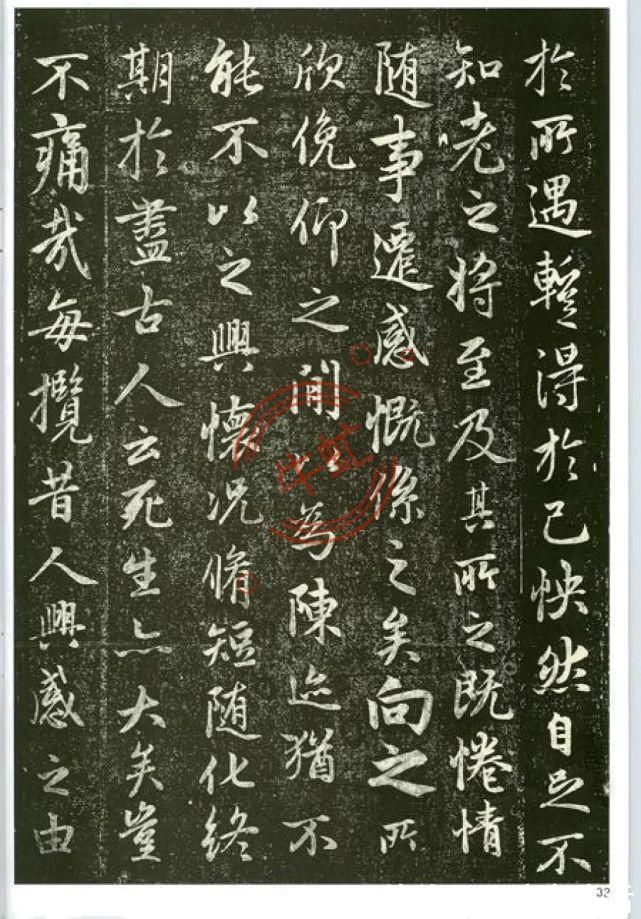 於所遇暫得於己怏然自足不
知老之將至及其所之既惓情
隨事遷感慨係之矣向之所
欣俛仰之間以為陳迹猶不
能不以之興懷況脩短隨化終
期於盡古人云死生亦大矣豈
不痛哉每攬昔人興感之由
32